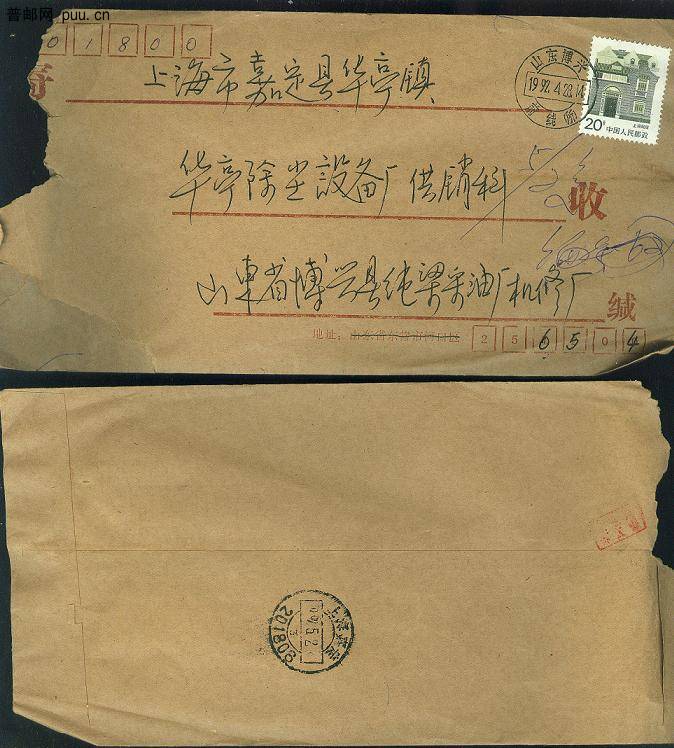 普邮网 puu.cn
01800
寄
上海市嘉定县华亭镇
华亭除尘設备厂供销科
收
山東省博兴县纯梁采油厂机修厂
缄
地址：山东省东营市河口区
256504
山东博兴
1992.4.28.14
20分 中国人民邮政
201808